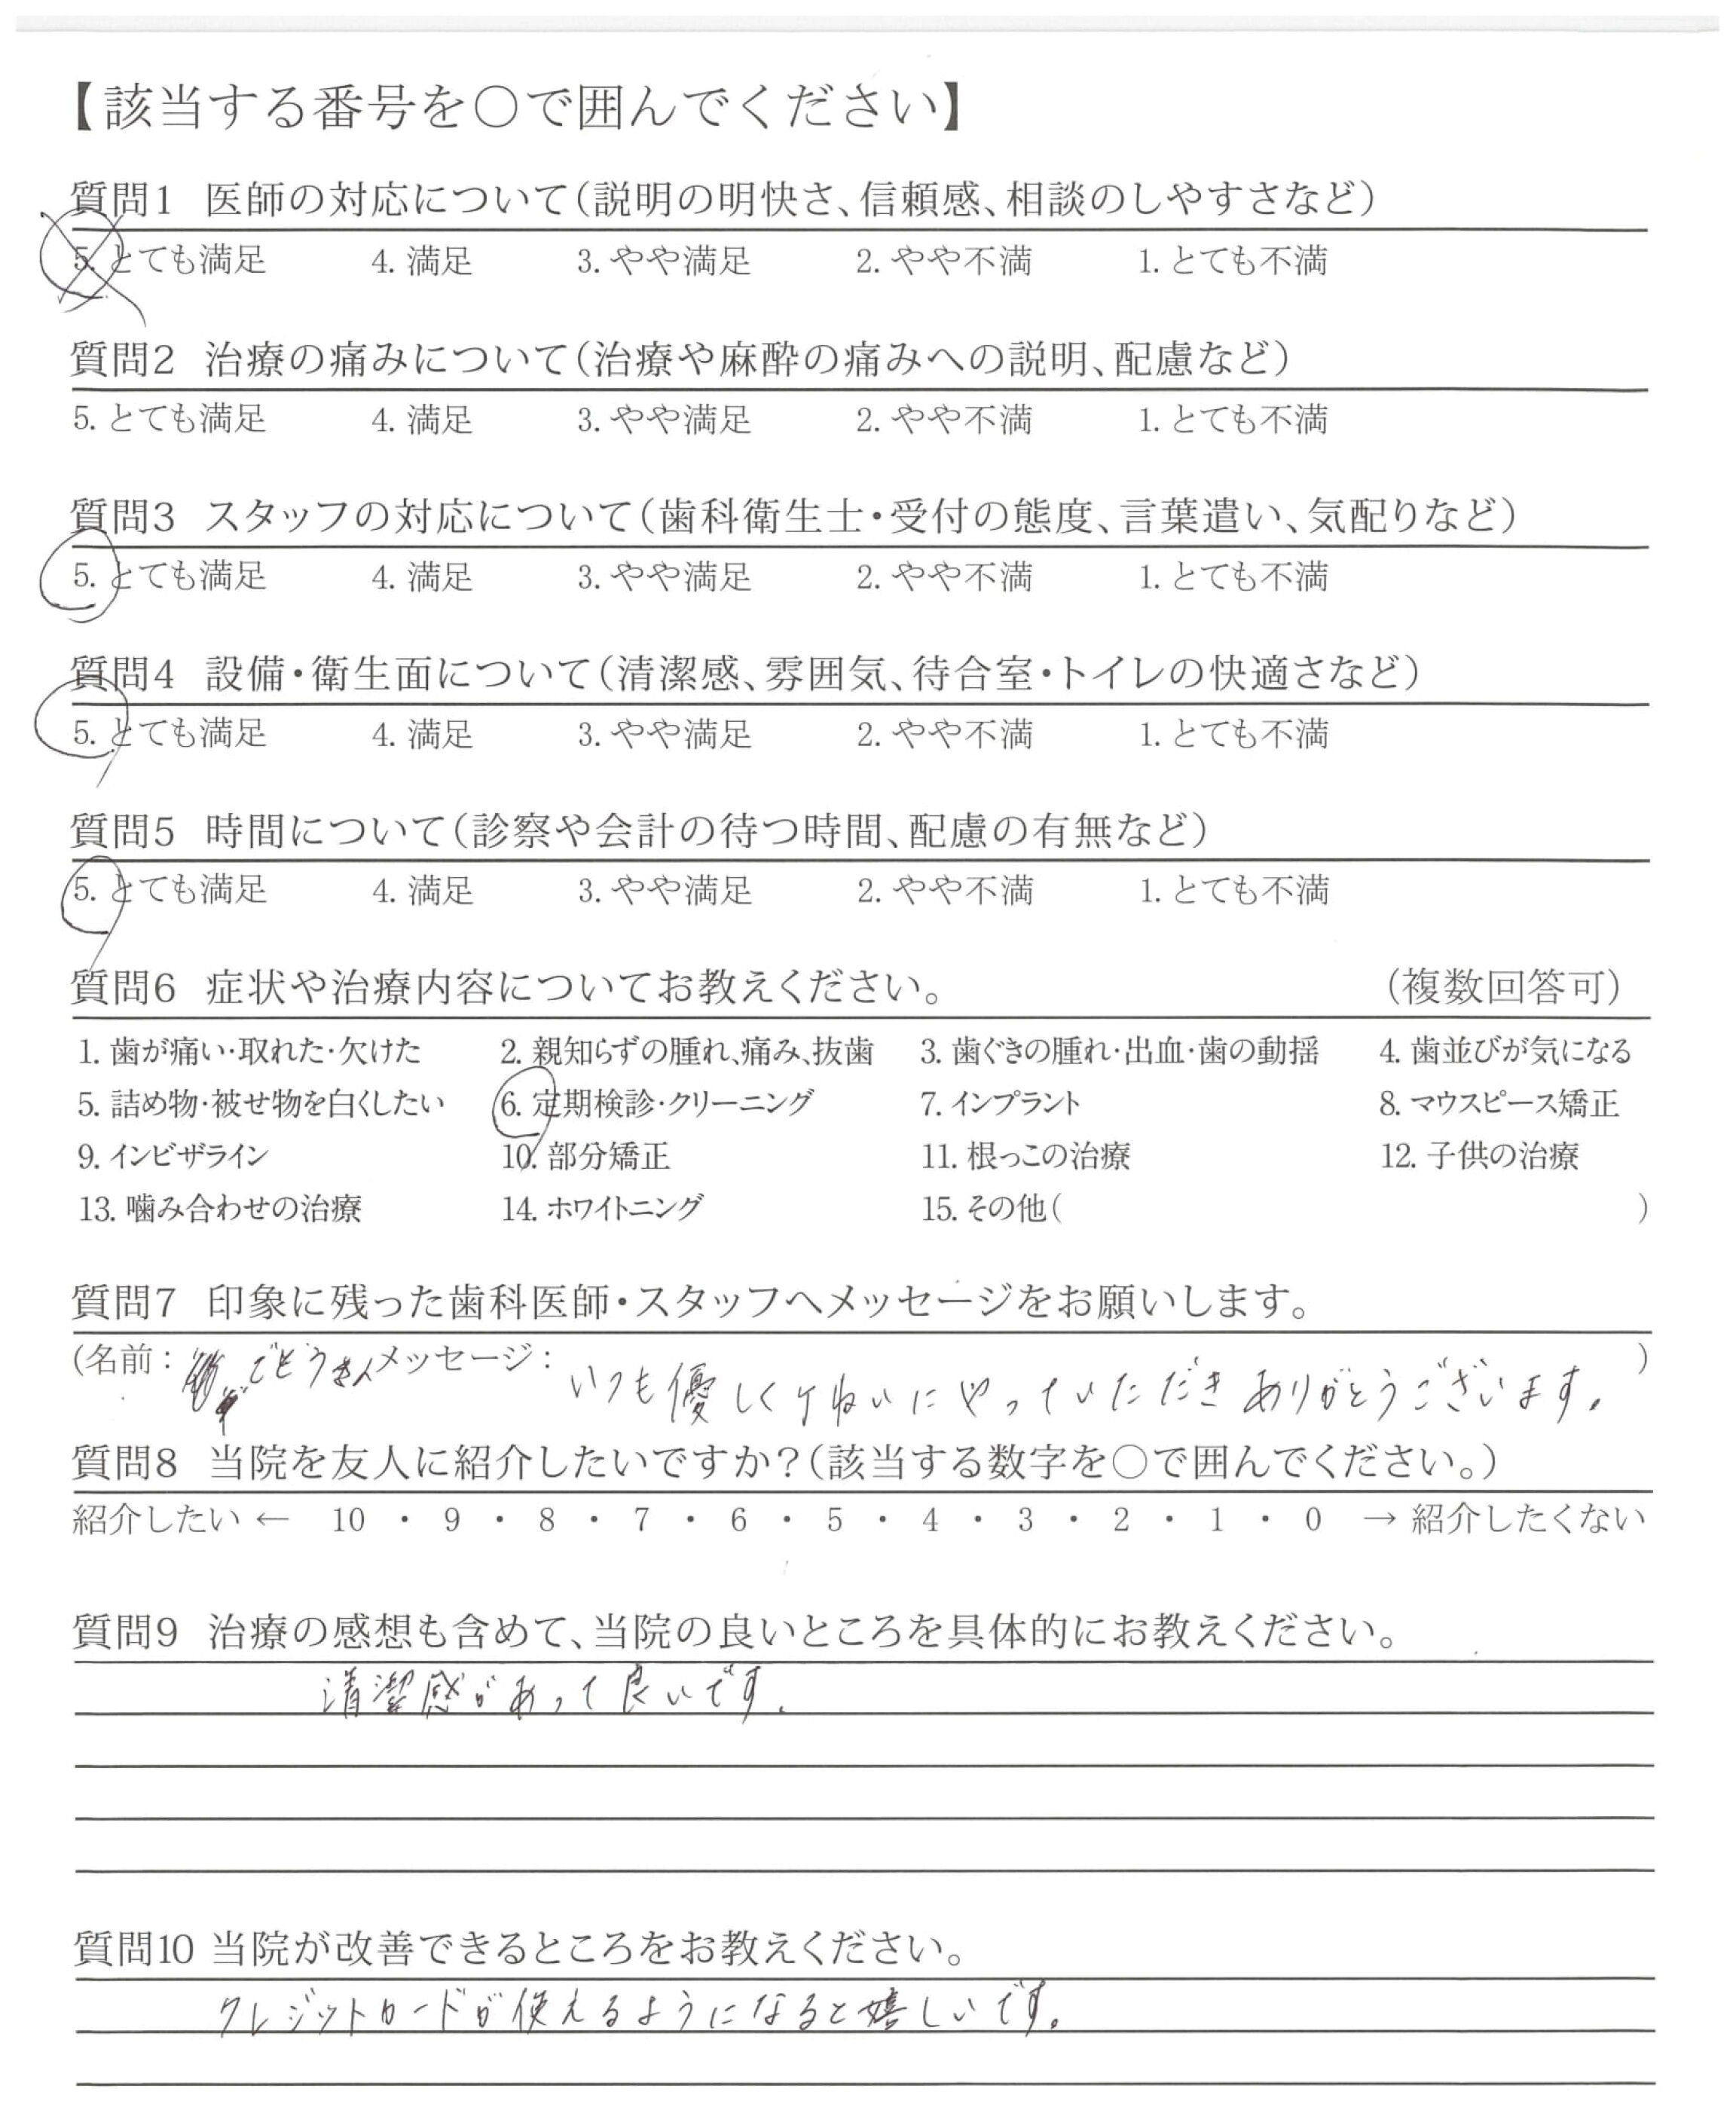 【該当する番号を○で囲んでください】
質問1 医師の対応について(説明の明快さ、信頼感、相談のしやすさなど)
5. とても満足 4. 満足 3. やや満足 2. やや不満 1. とても不満
質問2 治療の痛みについて(治療や麻酔の痛みへの説明、配慮など)
5. とても満足 4. 満足 3. やや満足 2. やや不満 1. とても不満
質問3 スタッフの対応について(歯科衛生士・受付の態度、言葉遣い、気配りなど)
5. とても満足 4. 満足 3. やや満足 2. やや不満 1. とても不満
質問4 設備・衛生面について(清潔感、雰囲気、待合室・トイレの快適さなど)
5. とても満足 4. 満足 3. やや満足 2. やや不満 1. とても不満
質問5 時間について(診察や会計の待つ時間、配慮の有無など)
5. とても満足 4. 満足 3. やや満足 2. やや不満 1. とても不満
質問6 症状や治療内容についてお教えください。 (複数回答可)
1. 歯が痛い・取れた・欠けた 2. 親知らずの腫れ、痛み、抜歯 3. 歯ぐきの腫れ・出血・歯の動揺 4. 歯並びが気になる
5. 詰め物・被せ物を白くしたい 6. 定期検診・クリーニング 7. インプラント 8. マウスピース矯正
9. インビザライン 10. 部分矯正 11. 根っこの治療 12. 子供の治療
13. 噛み合わせの治療 14. ホワイトニング 15. その他( )
質問7 印象に残った歯科医師・スタッフへメッセージをお願いします。
(名前: ごとうさん メッセージ: いつも優しくていねいにやっていただきありがとうございます。 )
質問8 当院を友人に紹介したいですか?(該当する数字を○で囲んでください。)
紹介したい ← 10 ・ 9 ・ 8 ・ 7 ・ 6 ・ 5 ・ 4 ・ 3 ・ 2 ・ 1 ・ 0 → 紹介したくない
質問9 治療の感想も含めて、当院の良いところを具体的にお教えください。
清潔感があって良いです。
質問10 当院が改善できるところをお教えください。
クレジットカードが使えるようになると嬉しいです。